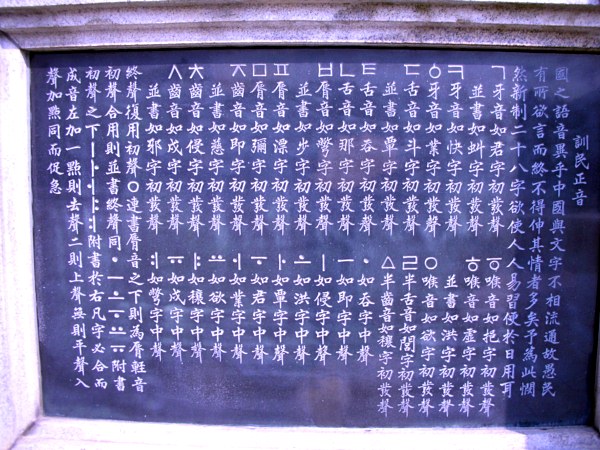 訓民正音
國之語音異乎中國與文字不相流通故愚民
有所欲言而終不得伸其情者多矣予為此憫
然新制二十八字欲使人人易習便於日用耳
ㄱ牙音如君字初發聲
並書如虯字初發聲
ㅋ牙音如快字初發聲
ㆁ牙音如業字初發聲
ㄷ舌音如斗字初發聲
並書如覃字初發聲
ㅌ舌音如呑字初發聲
ㄴ舌音如那字初發聲
ㅂ脣音如彆字初發聲
並書如步字初發聲
ㅍ脣音如漂字初發聲
ㅁ脣音如彌字初發聲
ㅈ齒音如即字初發聲
並書如慈字初發聲
ㅊ齒音如侵字初發聲
ㅅ齒音如戌字初發聲
並書如邪字初發聲
ㆆ喉音如挹字初發聲
ㅎ喉音如虛字初發聲
並書如洪字初發聲
ㅇ喉音如欲字初發聲
ㄹ半舌音如閭字初發聲
ㅿ半齒音如穰字初發聲
ㆍ如呑字中聲
ㅡ如即字中聲
ㅣ如侵字中聲
ㅗ如洪字中聲
ㅏ如覃字中聲
ㅜ如君字中聲
ㅓ如業字中聲
ㅛ如欲字中聲
ㅑ如穰字中聲
ㅠ如戌字中聲
ㅕ如彆字中聲
終聲復用初聲ㅇ連書脣音之下則為脣輕音
初聲合用則並書終聲同ㆍㅡㅗㅜㅛㅠ附書
初聲之下ㅣㅏㅓㅑㅕ附書於右凡字必合而
成音左加一點則去聲二則上聲無則平聲入
聲加點同而促急